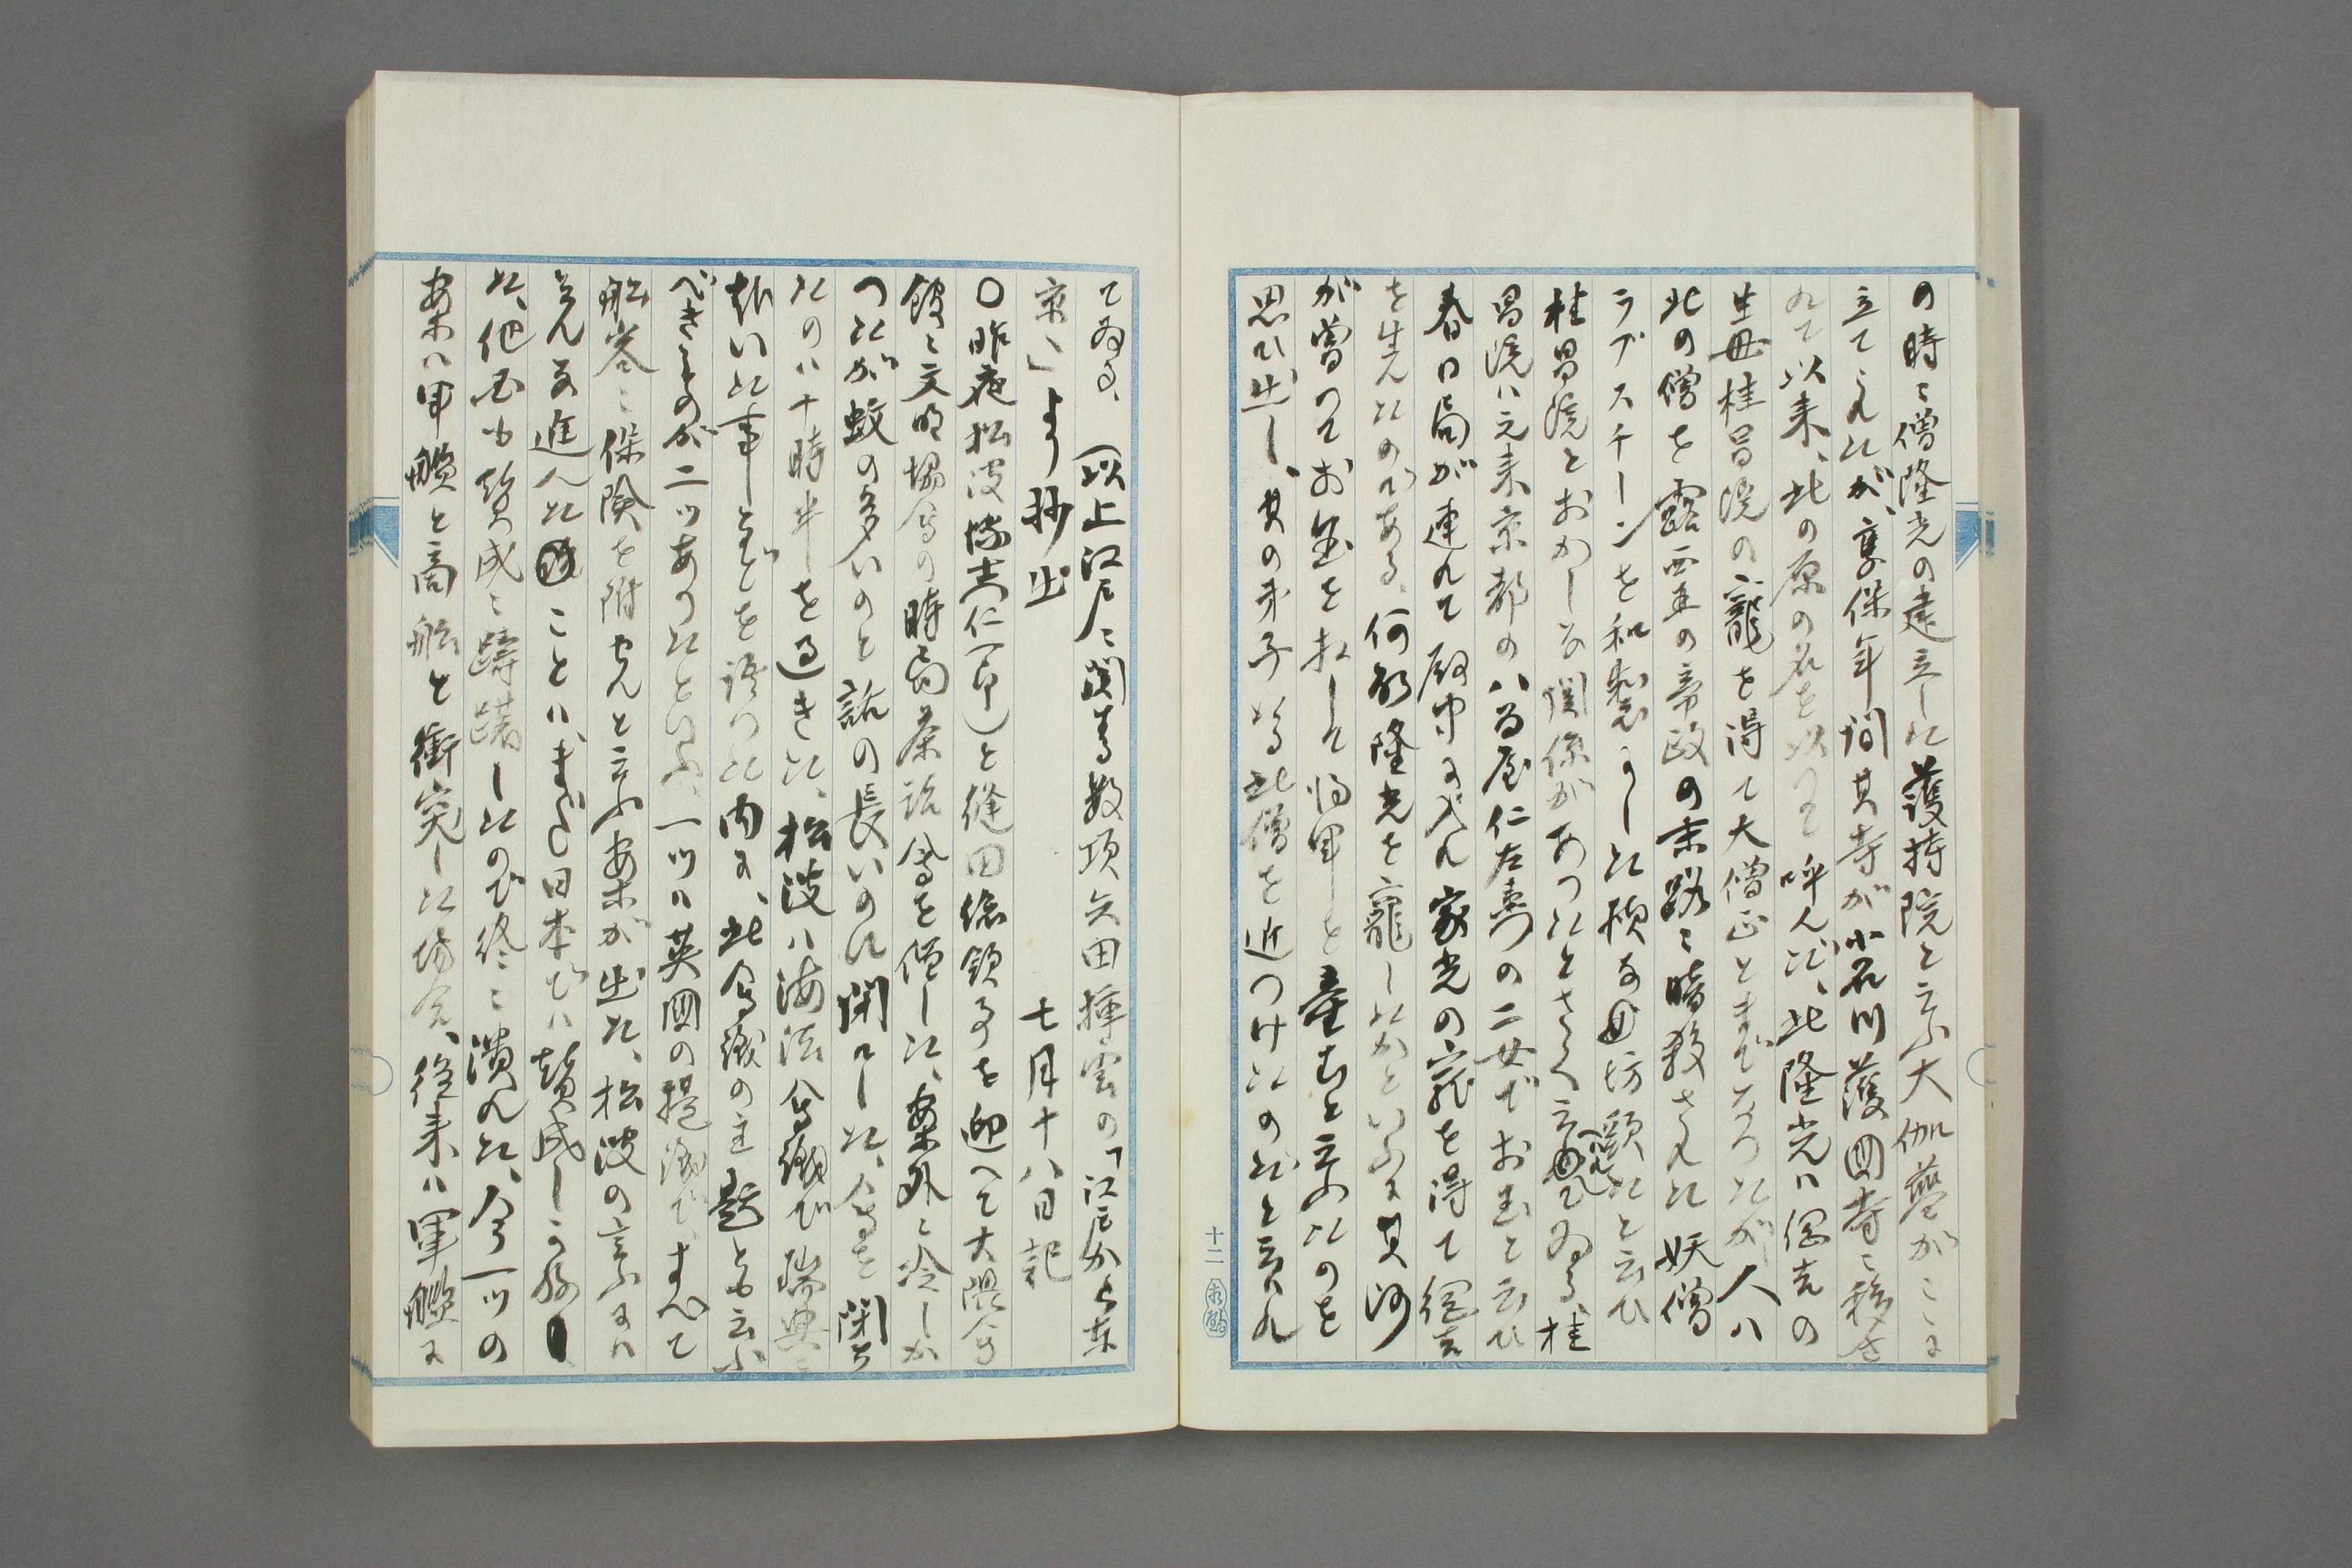 の時に僧隆光の建立した護持院と云ふ大伽藍がこゝに
立てられたが、享保年間其寺が小石川護国寺に移さ
れて以来、此の原の名を以つて呼んだ、此隆光ハ綱吉の
生母桂昌院の寵を得て大僧正とまでなつたが人ハ
此の僧を露西亜の帝政の末路に暗殺された妖僧
ラプスチーンを和製にした様な坊主と云ひ
桂昌院とおかしな関係があつたとさへ云ている、桂
昌院ハ元来京都の八百屋仁左衛門の二女でお玉と云ひ
春日局が連れて殿中に入れ家光の寵を得て綱吉
を生んたのである、何故隆光を寵したかといふに其河
が嘗つてお玉を相して将軍を産むと云ふたのを
思ひ出し、其の弟子なる此僧を近つけたのだと云はれ
十二
てゐる、(以上江戸に関する数項矢田挿雲の「江戸から東
京へ」より抄出　七月十八日記
〇昨夜松波博士(仁一郎)と縫田領事を迎へて大隈会
館に文明協会の時局茶話会を催した、案外に冷しか
つたが蚊の多いのと話の長いのに閉口した、会を閉ぢ
たのハ十時半を過きた、松波ハ海法会議で瑞典に
赴いた事などを語つた内に、此会議の主題とも云ふ
べきものが二ツあつたといふ、一ツハ英国の提議で、すべて
船客に保険を附せんと云ふ案が出た、松波の言ふには
こんな進んたことハ、まだ日本でハ賛成しかねし
た、他国も賛成に躊躇したので終に潰れた、今一ツの
案ハ軍艦と商船と衝突した場合、従来ハ軍艦に